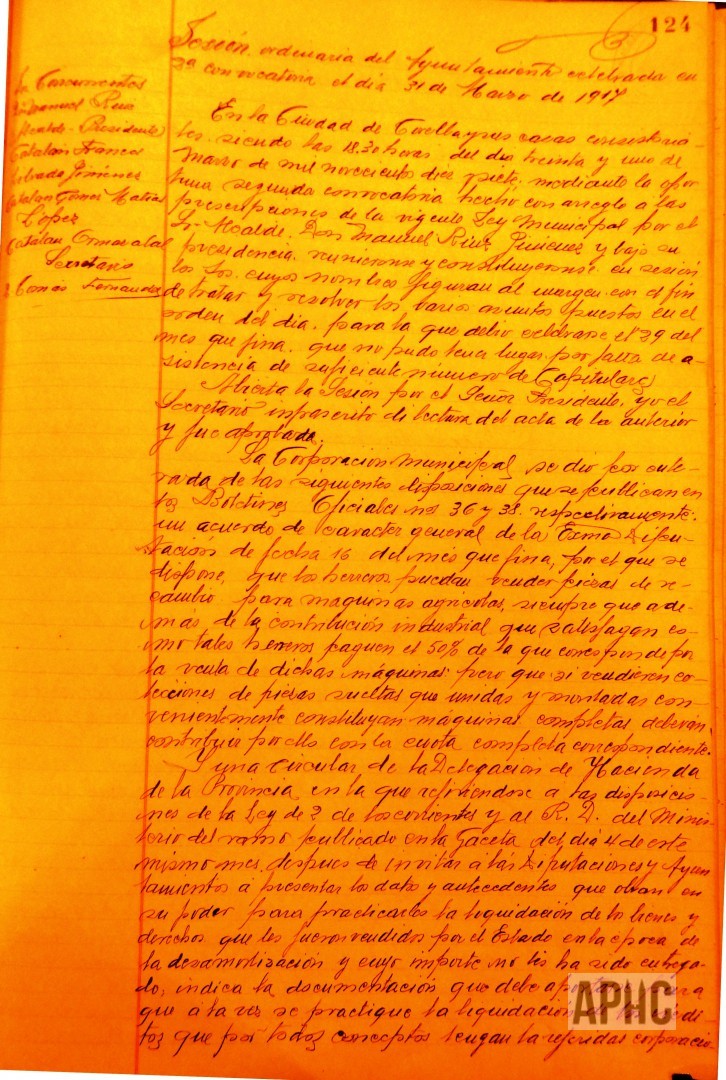 124
Sesión ordinaria del Ayuntamiento celebrada en
2ª convocatoria el día 31 de Marzo de 1917
Sres Concurrentes
Manuel Ruiz
Alcalde-Presidente
Catalan Franco
Jiménez
Catalan Gomez Matias
López
Catalan
Secretario
Tomas Fernandez
En la Ciudad de Corella y sus casas consistoria-
les, siendo las 18.30 horas del día treinta y uno de
Marzo de mil novecientos diez y siete, mediante la opor
tuna segunda convocatoria hecha con arreglo a las
prescripciones de la vigente Ley Municipal por el
Sr. Alcalde Don Manuel Ruiz Jimenez y bajo su
presidencia reunieronse y constituyeronse en sesión
los Sres. cuyos nombres figuran al margen con el fin
de tratar y resolver los varios asuntos puestos en el
orden del dia, para la que debio celebrarse el 29 del
mes que fina, que no pudo tener lugar por falta de a-
sistencia de suficiente número de Capitulares
Abierta la Sesión por el Señor Presidente, yo el
Secretario infrascrito di lectura del acta de la anterior
y fue aprobada.
La Corporación municipal se dio por ente-
rada de las siguientes disposiciones que se publican en
los Boletines Oficiales nos 36 y 38 respectivamente:
un acuerdo de caracter general de la Exma Dipu-
tación de fecha 16 del mes que fina, por el que se
dispone, que los herreros puedan vender piezas de re-
cambio para maquinas agricolas, siempre que ade-
más de la contribución industrial que satisfagan co-
mo tales herreros paguen el 50% de la que corresponde por
la venta de dichas máquinas pero que si vendieren co-
lecciones de piezas sueltas que unidas y montadas con-
venientemente constituyan máquinas completas deberán
contribuir por ello con la cuota completa correspondiente.
Y una circular de la Delegacion de Hacienda
de la Provincia en la que refiriendose a las disposicio
nes de la Ley de 2 de los corrientes y al R. D. del Minis
terio del ramo publicado en la Gaceta del dia 4 de este
mismo mes, despues de invitar a las Diputaciones y Ayun
tamientos a presentar los datos y antecedentes que obran en
su poder para practicarles la liquidación de los bienes y
derechos que les fueron vendidos por el Estado en la epoca de
la desamortización y cuyo importe no les ha sido entrega-
do, indica la documentación que debe para
que a la vez se practique la liquidación de los credi-
tos que por todos conceptos tengan la referidas corporacio
APHC